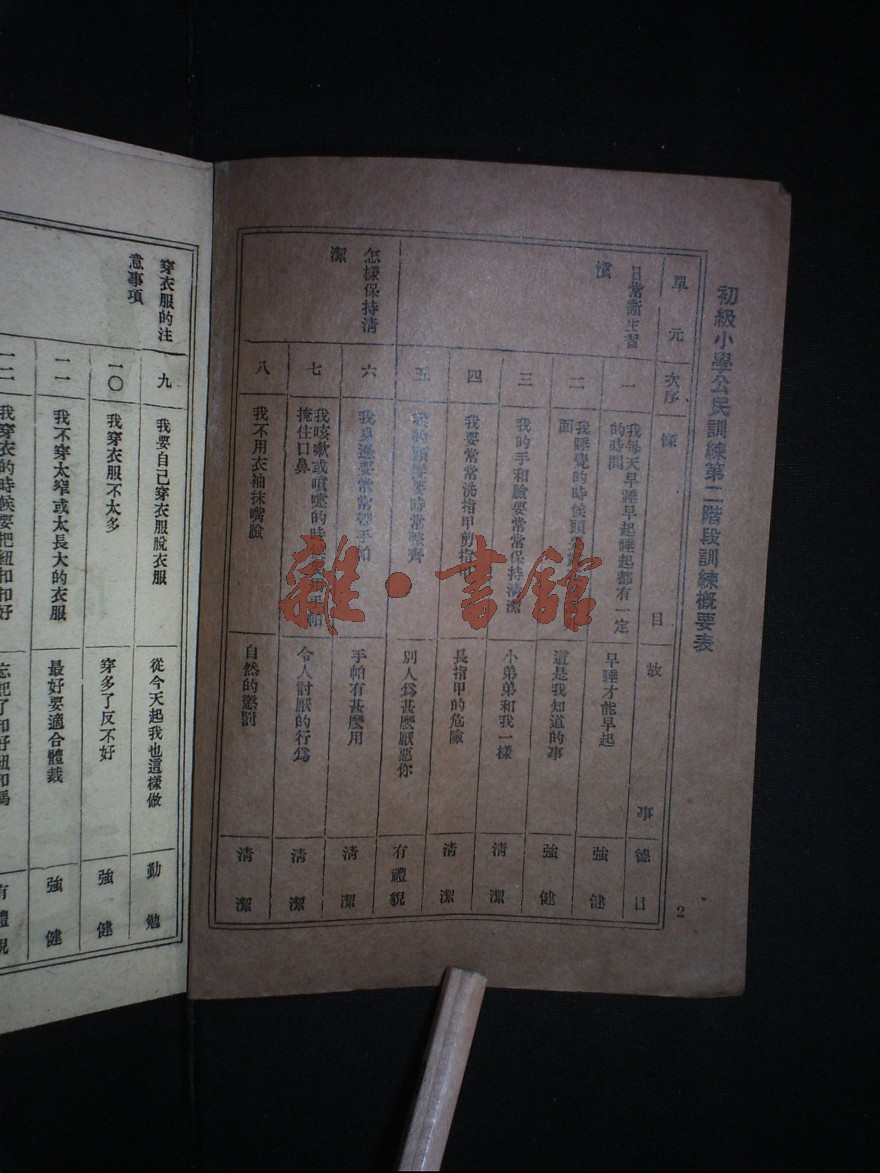 初級小學公民訓練第二階段訓練概要表
2
單元
次序
條目
故事
德目
日常衛生習
慣
一
我每天早睡早起睡起都有一定
的時間
早睡才能早起
強健
二
我睡覺的時候頭
面
這是我知道的事
強健
三
我的手和臉要常常保持清潔
小弟弟和我一樣
清潔
四
我要常常洗指甲剪指甲
長指甲的危險
清潔
五
我的頭髮要時常整齊
別人爲甚麼厭惡你
有禮貌
怎樣保持清
潔
六
我身邊要常常帶手帕
手帕有甚麼用
清潔
七
我咳嗽或噴嚏的時候用手帕
掩住口鼻
令人討厭的行爲
清潔
八
我不用衣袖抹嘴臉
自然的懲罰
清潔
雜·書館
穿衣服的注
意事項
九
我要自己穿衣服脫衣服
從今天起我也這樣做
勤勉
一〇
我穿衣服不太多
穿多了反不好
強健
一一
我不穿太窄或太長大的衣服
最好要適合體裁
強健
一二
我穿衣的時候要把紐扣扣好
忘記了扣好紐扣嗎
有禮貌